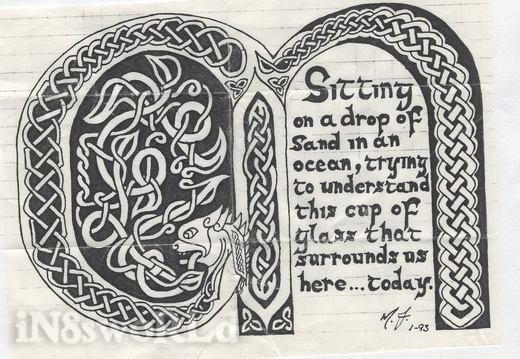 Sitting
on a drop of
Sand in an
ocean, trying
to understand
this cup of
glass that
surrounds us
here...today.
M. J.
1-93
iN8sWORLd